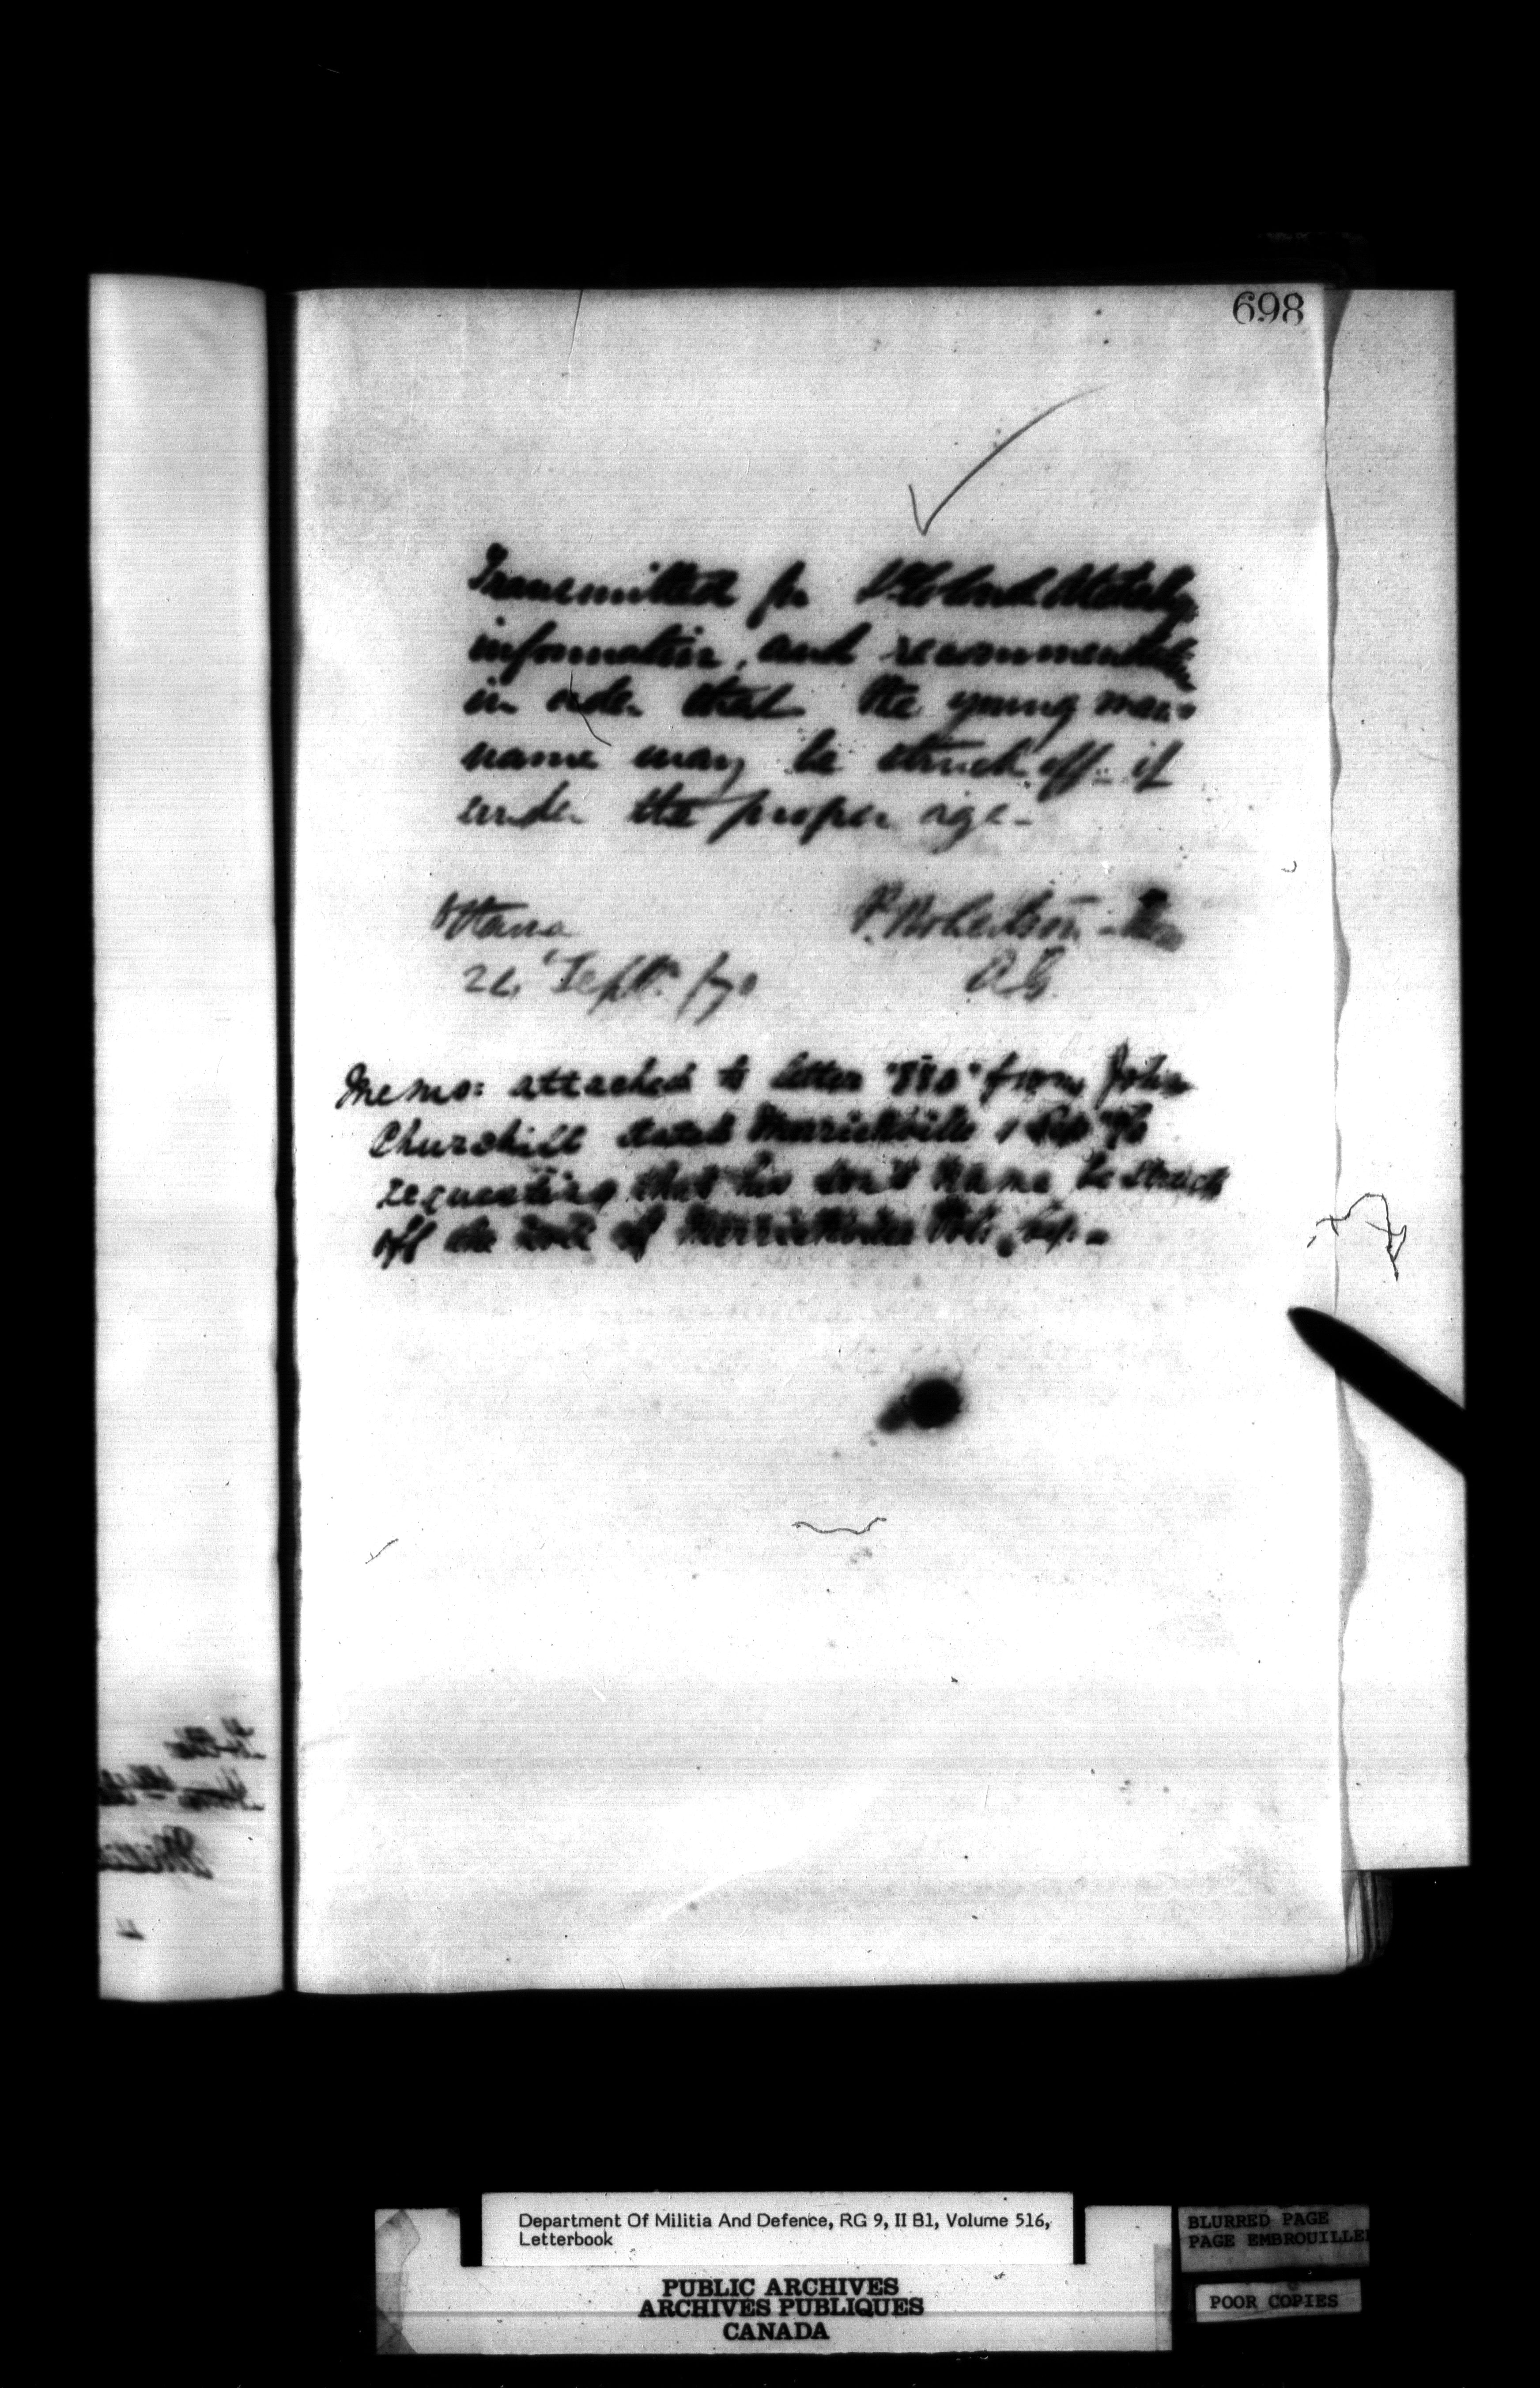 698
Transmitted for Lt Colonel
information, and
in order that the young man's
name may be struck off if
under the proper age.
Ottawa P. Robertson-Ross
Septr /70 A.G.
Memo: attached to letter "880" from John
Churchill dated Merrickville 1 Sep 70
requesting that his son's name be struck
off the roll of Merrickville
Department Of Militia And Defence, RG 9, II B1, Volume 516,
Letterbook
PUBLIC ARCHIVES
ARCHIVES PUBLIQUES
CANADA
BLURRED PAGE
PAGE EMBROUILLE
POOR COPIES